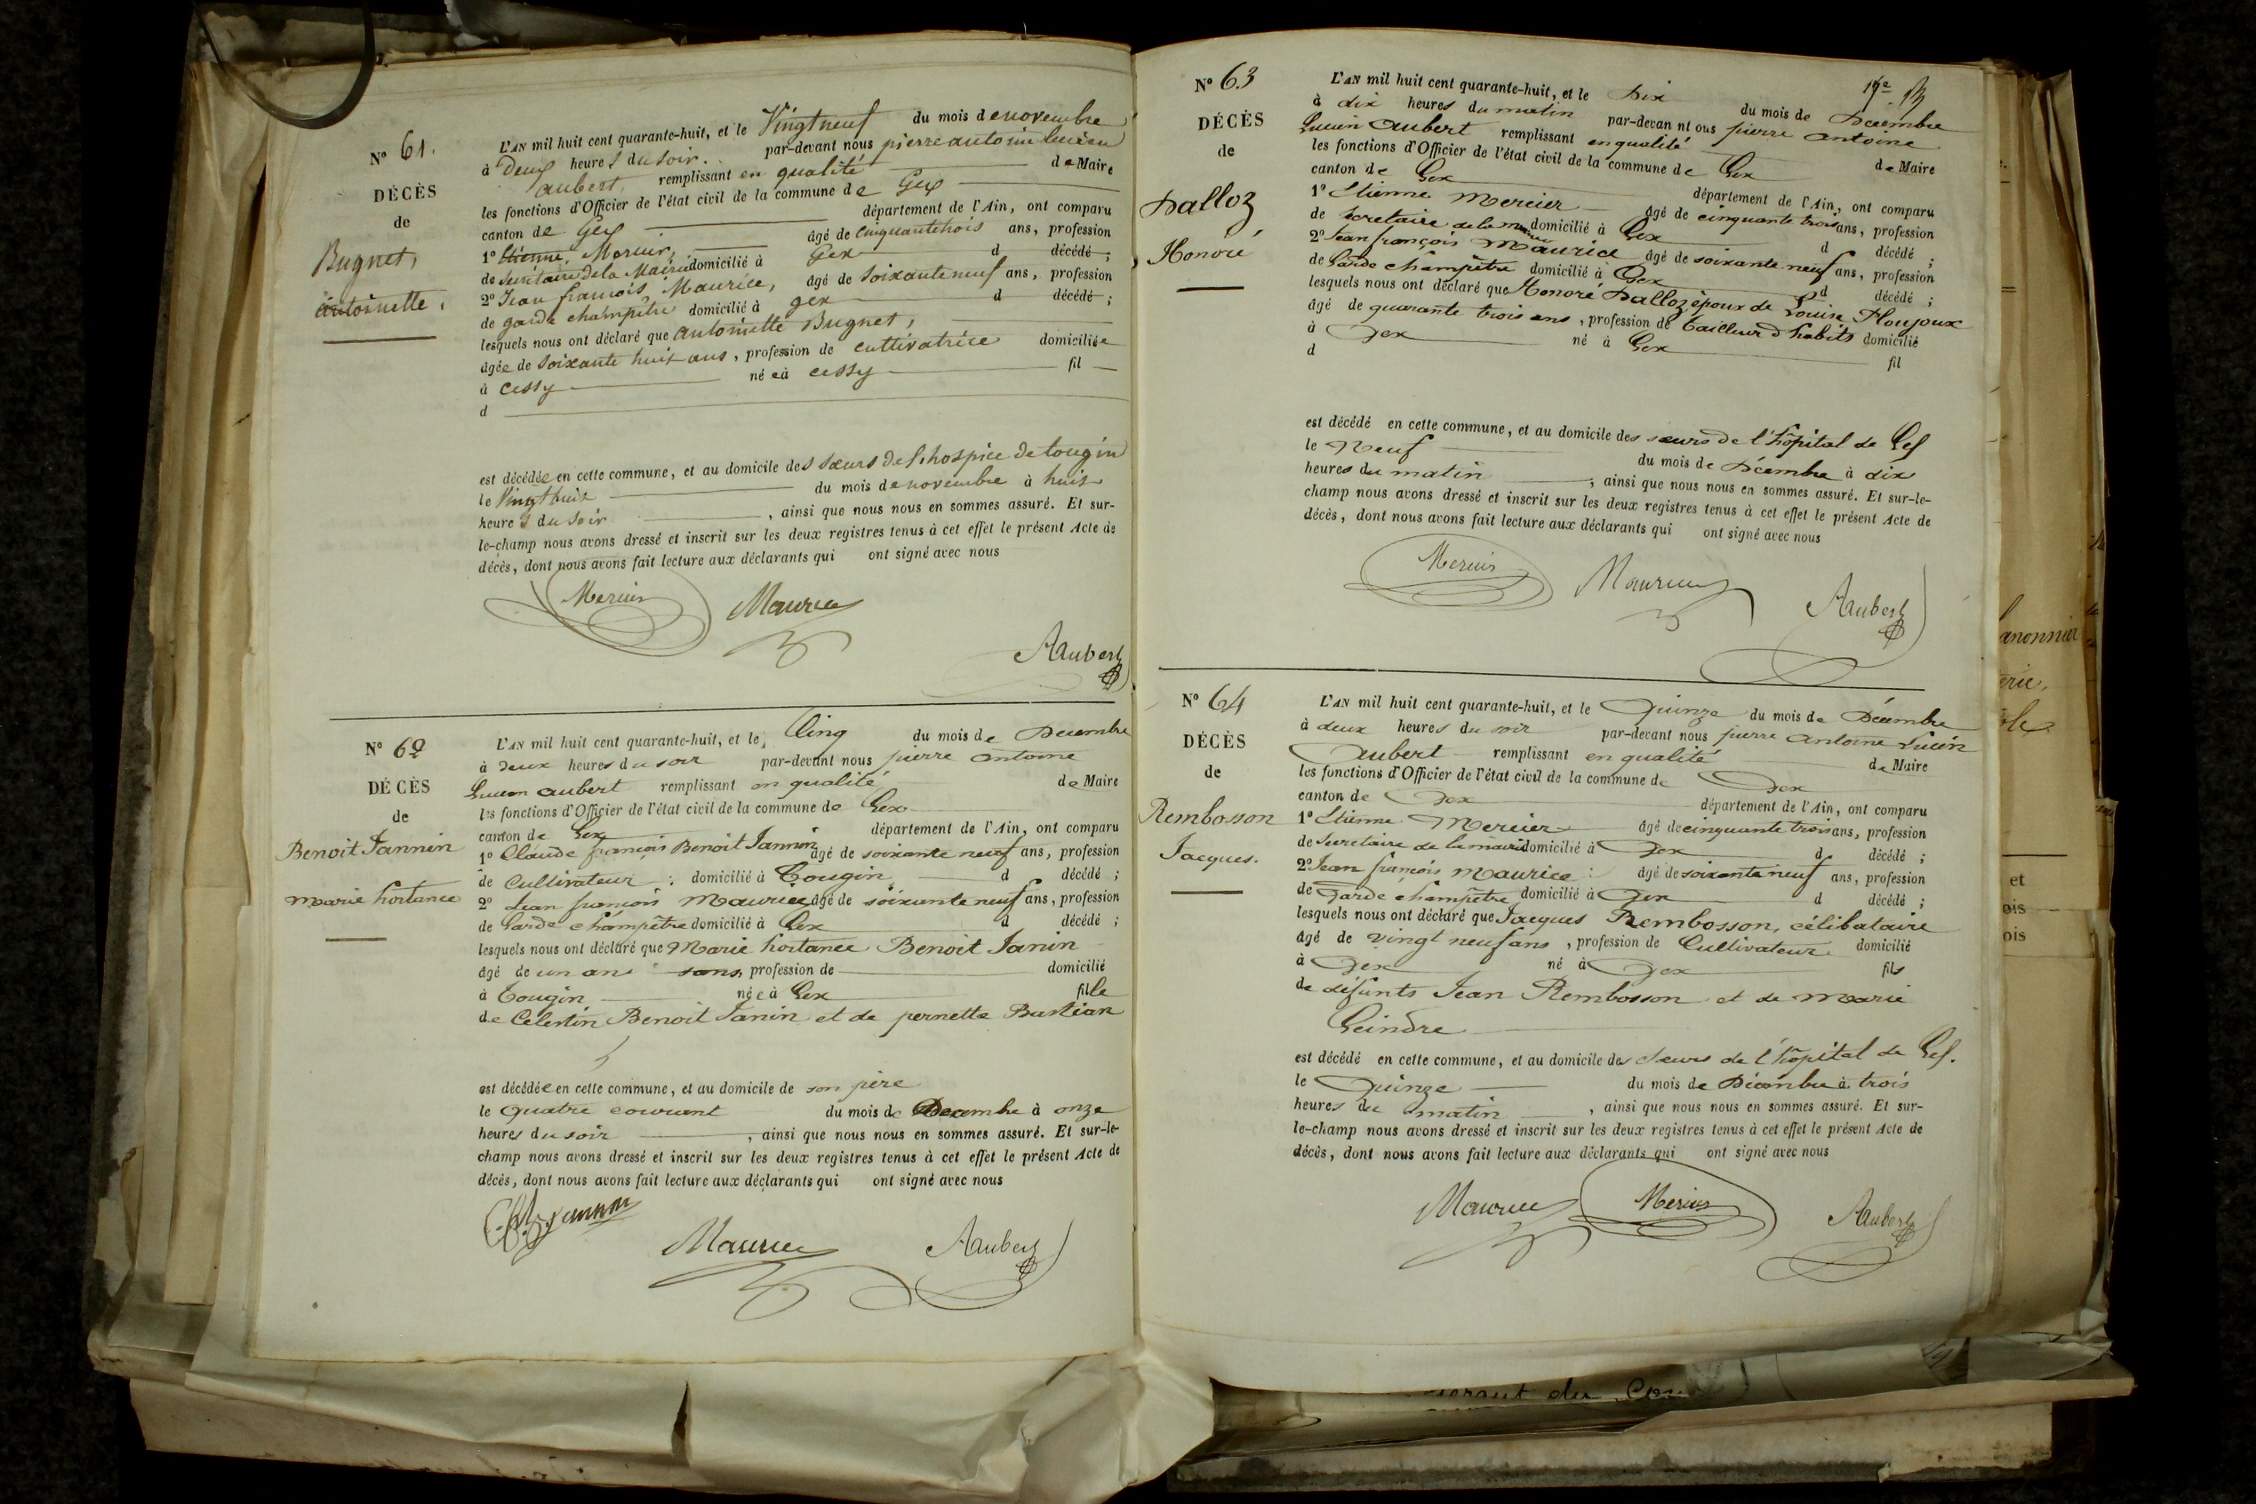 N° 61.
DÉCÈS
de
Bugnet,
antoinette,
L'AN mil huit cent quarante-huit, et le Vingt neuf du mois de novembre
à Deux heures du soir. par-devant nous pierre antoine lucien
aubert, remplissant en qualité de Maire
les fonctions d'Officier de l'état civil de la commune de Gex
canton de Gex département de l'Ain, ont comparu
1° Etienne, Mercier, âgé de cinquante trois ans, profession
de Secrétaire de la Mairie domicilié à Gex d décédé ;
2° Jean françois, Maurice, âgé de soixante neuf ans, profession
de garde champêtre domicilié à gex d décédé ;
lesquels nous ont déclaré que antoinette Bugnet,
âgée de soixante huit ans, profession de cultivatrice domiciliée
à Cessy née à cessy fil
d
est décédée en cette commune, et au domicile des sœurs de l'hospice de tougin
le Vingt huit du mois de novembre à huit
heures du soir, ainsi que nous nous en sommes assuré. Et sur-
le-champ nous avons dressé et inscrit sur les deux registres tenus à cet effet le présent Acte de
décès, dont nous avons fait lecture aux déclarants qui ont signé avec nous
Mercier Maurice
Aubert
N° 62
DÉCÈS
de
Benoit Jannin
marie hortance
L'AN mil huit cent quarante-huit, et le Cinq du mois de Decembre
à deux heures du soir par-devant nous pierre antoine
Lucien aubert remplissant en qualité de Maire
les fonctions d'Officier de l'état civil de la commune de Gex
canton de Gex département de l'Ain, ont comparu
1° Claude françois Benoit Jannin âgé de soixante neuf ans, profession
de Cultivateur ; domicilié à Tougin d décédé ;
2° Jean françois Maurice, âgé de soixante neuf ans, profession
de Garde champêtre domicilié à Gex d décédé ;
lesquels nous ont déclaré que Marie hortance Benoit Janin
âgé de un an sans, profession de domicilié
à Tougin née à Gex fille
de Célestin Benoit Janin et de pernette Bastian
est décédée en cette commune, et au domicile de son père
le quatre courant du mois de Decembre à onze
heures du soir, ainsi que nous nous en sommes assuré. Et sur-le-
champ nous avons dressé et inscrit sur les deux registres tenus à cet effet le présent Acte de
décès, dont nous avons fait lecture aux déclarants qui ont signé avec nous
Maurice Aubert
N° 63
DÉCÈS
de
Dalloz
Honoré
L'AN mil huit cent quarante-huit, et le Dix du mois de Décembre
à dix heures du matin par-devan nt ous pierre antoine
Lucien Aubert remplissant en qualité de Maire
les fonctions d'Officier de l'état civil de la commune de Gex
canton de Gex département de l'Ain, ont comparu
1° Etienne Mercier âgé de cinquante trois ans, profession
de Secretaire de la mairie domicilié à Gex d décédé ;
2° Jean françois Maurice âgé de soixante neuf ans, profession
de Garde Champêtre domicilié à Gex d décédé ;
lesquels nous ont déclaré que Honoré Dalloz époux de Louise Moujoux
âgé de quarante trois ans, profession de tailleur d'habits domicilié
à Gex né à Gex fil
d
est décédé en cette commune, et au domicile des sœurs de l'hôpital de Gex
le Neuf du mois de Décembre à dix
heures du matin ; ainsi que nous nous en sommes assuré. Et sur-le-
champ nous avons dressé et inscrit sur les deux registres tenus à cet effet le présent Acte de
décès, dont nous avons fait lecture aux déclarants qui ont signé avec nous
Mercier Maurice Aubert
N° 64
DÉCÈS
de
Rembosson
Jacques.
L'AN mil huit cent quarante-huit, et le Quinze du mois de Décembre
à deux heures du soir par-devant nous pierre antoine Lucien
Aubert remplissant en qualité de Maire
les fonctions d'Officier de l'état civil de la commune de Gex
canton de Gex département de l'Ain, ont comparu
1° Etienne Mercier âgé de cinquante trois ans, profession
de Secretaire de la mairie domicilié à Gex d décédé ;
2° Jean françois Maurice âgé de soixante neuf ans, profession
de Garde champêtre domicilié à Gex d décédé ;
lesquels nous ont déclaré que Jacques Rembosson, célibataire
âgé de vingt neuf ans, profession de Cultivateur domicilié
à Gex né à Gex fils
de défunts Jean Rembosson et de marie
Geindre
est décédé en cette commune, et au domicile des sœurs de l'hôpital de Gex.
le Quinze du mois de Décembre à trois
heures du matin, ainsi que nous nous en sommes assuré. Et sur-
le-champ nous avons dressé et inscrit sur les deux registres tenus à cet effet le présent Acte de
décès, dont nous avons fait lecture aux déclarants qui ont signé avec nous
Maurice Mercier Aubert
et
ois
ois